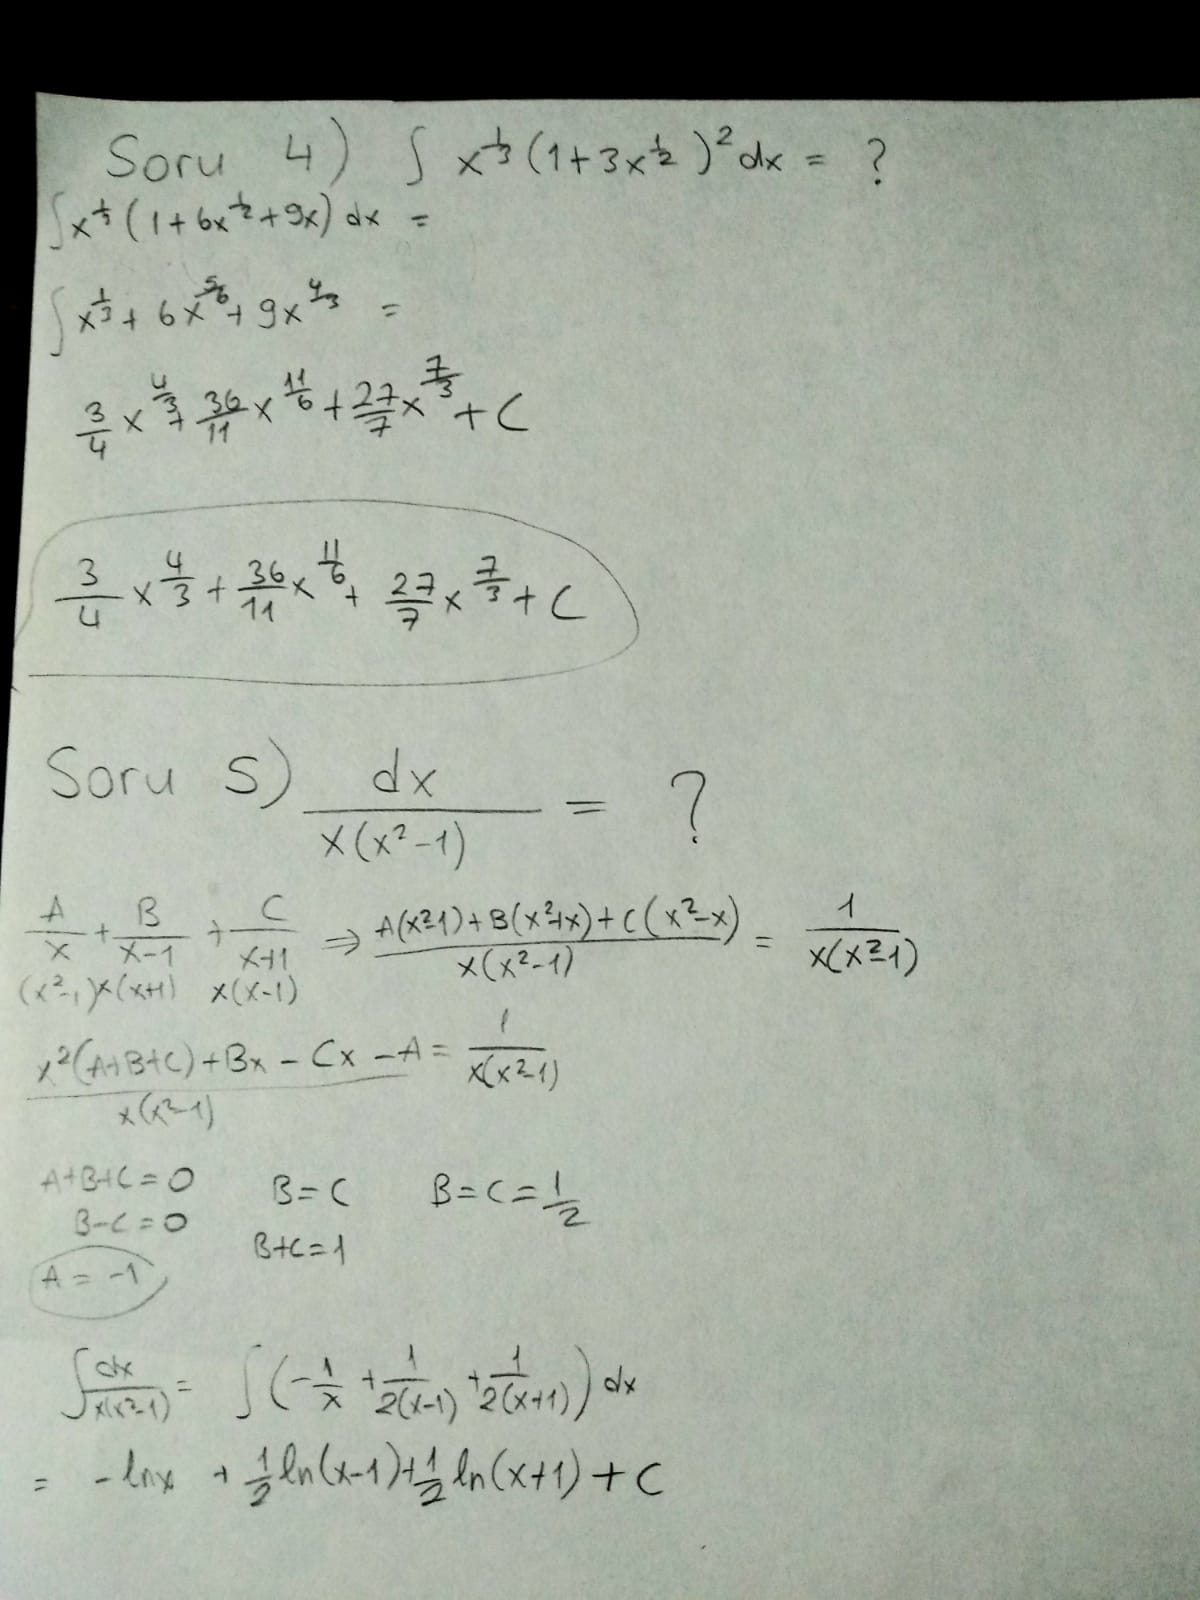 Soru 4) ∫ x^(1/3) (1+3x^(1/2))² dx = ?
∫x^(1/3) (1+6x^(1/2)+9x) dx =
∫x^(1/3) + 6x^(5/6) + 9x^(4/3) =
3/4 x^(4/3) + 36/11 x^(11/6) + 27/7 x^(7/3) + C
3/4 x^(4/3) + 36/11 x^(11/6) + 27/7 x^(7/3) + C
Soru 5) dx/(x(x²-1)) = ?
A/x + B/(x-1) + C/(x+1) ⇒ (A(x²-1)+B(x²+x)+C(x²-x))/(x(x²-1)) = 1/(x(x²-1))
(x²-1) x(x+1) x(x-1)
(x²(A+B+C)+Bx-Cx-A)/(x(x²-1)) = 1/(x(x²-1))
A+B+C=0 B=C B=C=1/2
B-C=0 B+C=1
A=-1
∫dx/(x(x²-1)) = ∫(-1/x + 1/(2(x-1)) + 1/(2(x+1))) dx
= -lnx + 1/2 ln(x-1) + 1/2 ln(x+1) + C